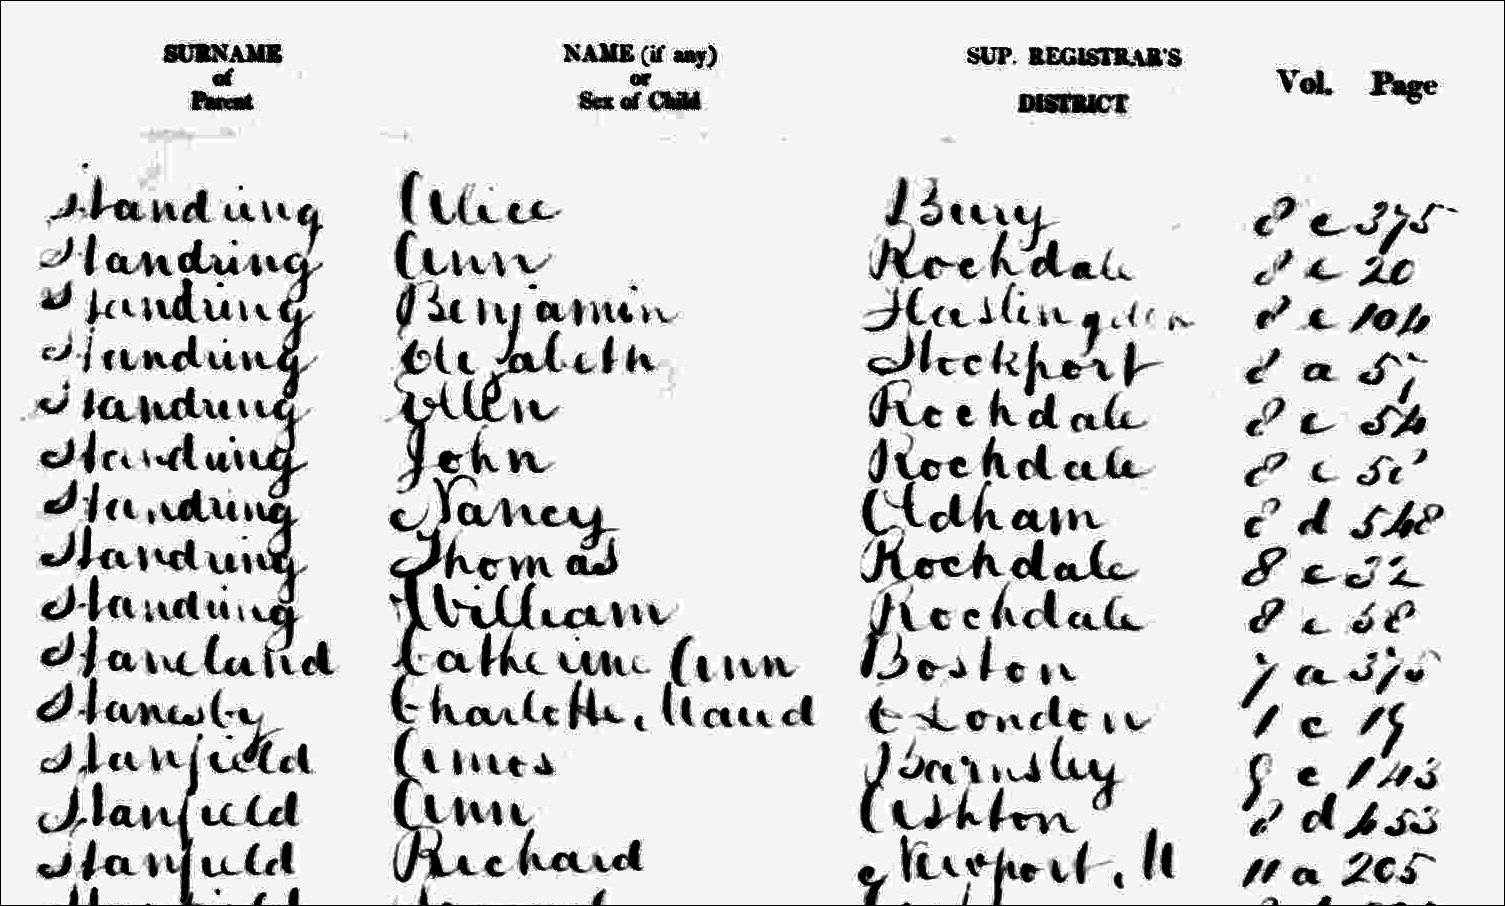 SURNAME of Parent NAME (if any) or Sex of Child SUP. REGISTRAR'S DISTRICT Vol. Page
Standring Alice Bury 8 c 375
Standring Ann Rochdale 8 c 20
Standring Benjamin Haslingden 8 c 104
Standring Elizabeth Stockport 8 a 57
Standring Ellen Rochdale 8 c 54
Standring John Rochdale 8 c
Standring Nancy Oldham 8 d 548
Standring Thomas Rochdale 8 c 32
Standring William Rochdale 8 c 38
Staneland Catherine Ann Boston 7 a
Stanesby Charlotte, Maud E London 1 c 19
Stanfield Amos Barnsley 9 c 143
Stanfield Ann Ashton 8 d 453
Stanfield Richard Newport, M 11 a 205